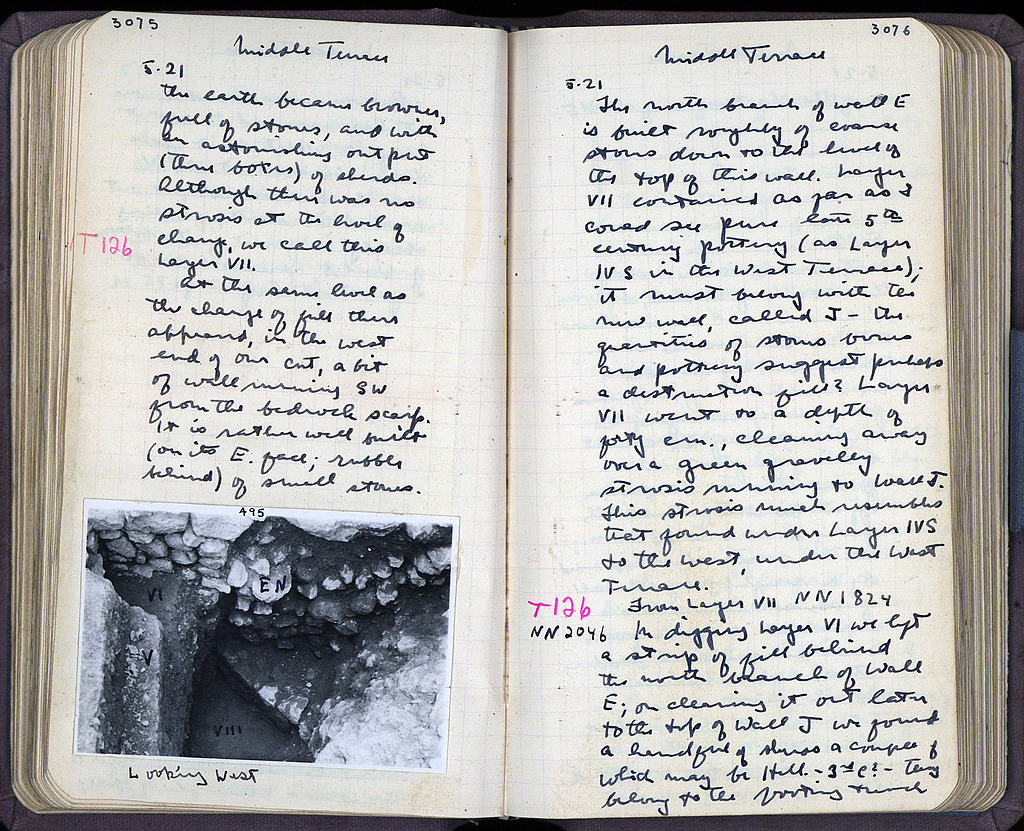 3075
Middle Terrace
5.21
the earth became browner,
full of stones, and with
an astonishing output
(three boxes) of sherds.
Although there was no
strosis at the level of
change, we call this
T 126
Layer VII.
At the same level as
the change of fill there
appeared, in the west
end of our cut, a bit
of wall running SW
from the bedrock scarp.
It is rather well built
(on its E. face; rubble
behind) of small stones.
495
EN
VI
V
VIII
Looking West
3076
Middle Terrace
5.21
The north branch of wall E
is built roughly of coarse
stones down to the level of
the top of this wall. Layer
VII contained as far as I
could see pure late 5th
century pottery (as Layer
IVS in the West Terrace);
it must belong with the
new wall, called J – the
quantities of stones
and pottery suggest perhaps
a destruction fill? Layer
VII went to a depth of
forty cm., cleaning away
over a green gravelly
strosis running to Wall J.
This strosis much resembles
that found under Layer IVS
to the west, under the West
Terrace.
T 126
From Layer VII NN 1824
NN 2046
In digging Layer VI we left
a strip of fill behind
the north branch of Wall
E; on cleaning it out later
to the top of Wall J we found
a handful of sherds a couple of
which may be Hell. – 3rd c? – they
belong to the footing trench